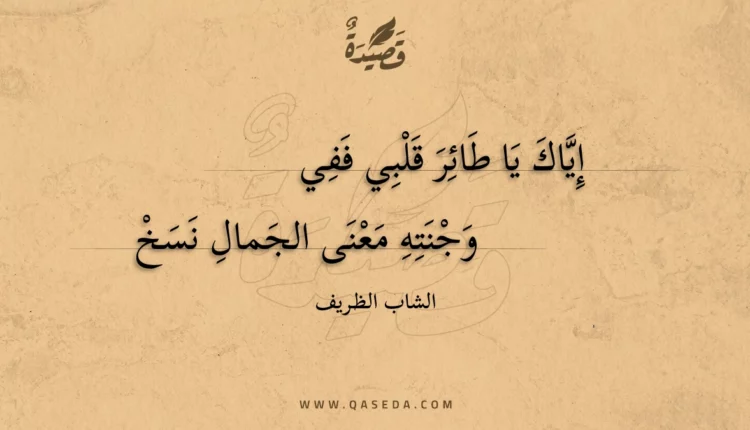 قَصِيْدَةٌ
إِيَّاكَ يَا طَائِرَ قَلْبِي فَفِي
وَجْنَتِهِ مَعْنَى الجَمالِ نَسَخْ
الشاب الظريف
WWW.QASEDA.COM